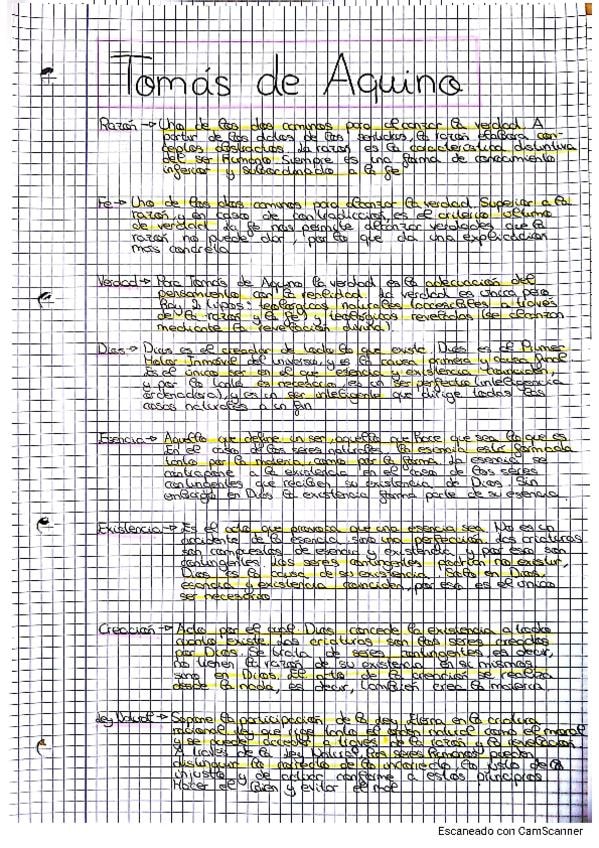 Tomás de Aquino
Razón → Uno de los dos caminos para alcanzar la verdad. A
partir de los datos de los sentidos, la razón elabora con-
ceptos abstractos. La razón es la característica distintiva
del ser humano. Siempre es una forma de conocimiento
inferior y subordinado a la fe
Fe → Uno de los dos caminos para alcanzar la verdad. Superior a la
razón, y en caso de contradicción, es el criterio último
de verdad. La fe nos permite alcanzar verdades que la
razón no puede dar, por lo que da una explicación
más concreta
Verdad → Para Tomás de Aquino la verdad es la adecuación del
pensamiento con la realidad. La verdad es única pero
hay 2 tipos: teológicos naturales (accesibles a través
de la razón y la fe) y teológicos revelados (se alcanzan
mediante la revelación divina).
Dios → Dios es el creador de todo lo que existe. Dios es el Primer
Motor Inmóvil del universo, y es la causa primera y causa final
Es el único ser en el que esencia y existencia coinciden,
y por lo tanto es necesario, es un ser perfecto (inteligencia
ordenadora), y es un ser inteligente que dirige todas las
cosas naturales a un fin
Esencia → Aquello que define un ser, aquello que hace que sea lo que es
En el caso de los seres naturales, la esencia está formada
tanto por la materia, como por la forma. La esencia se
contrapone a la existencia en el caso de los seres
contingentes que reciben su existencia de Dios. Sin
embargo en Dios la existencia forma parte de su esencia.
Existencia → Es el acto que provoca que una esencia sea. No es un
accidente de la esencia, sino una perfección. Las criaturas
son compuestas de esencia y existencia y por eso son
contingentes. Los seres contingentes podrían no existir,
Dios es la causa de su existencia. Solo en Dios,
esencia y existencia coinciden, por eso es el único
ser necesario
Creación → Acto por el cual Dios concede la existencia a todo
cuanto existe. Las criaturas son los seres creados
por Dios. Se trata de seres contingentes es decir,
no tienen la razón de su existencia en sí mismos
sino en Dios. El acto de la creación se realiza
desde la nada, es decir, también crea la materia
Ley Natural → Supone la participación de la Ley Eterna en la criatura
racional. Ley que rige tanto el orden natural como el moral
y se puede acceder a través de la razón y la revelación
A través de la Ley Natural los seres humanos pueden
distinguir lo correcto de lo incorrecto, lo justo de lo
injusto y de actuar conforme a estos principios
Hacer el bien y evitar el mal
Escaneado con CamScanner